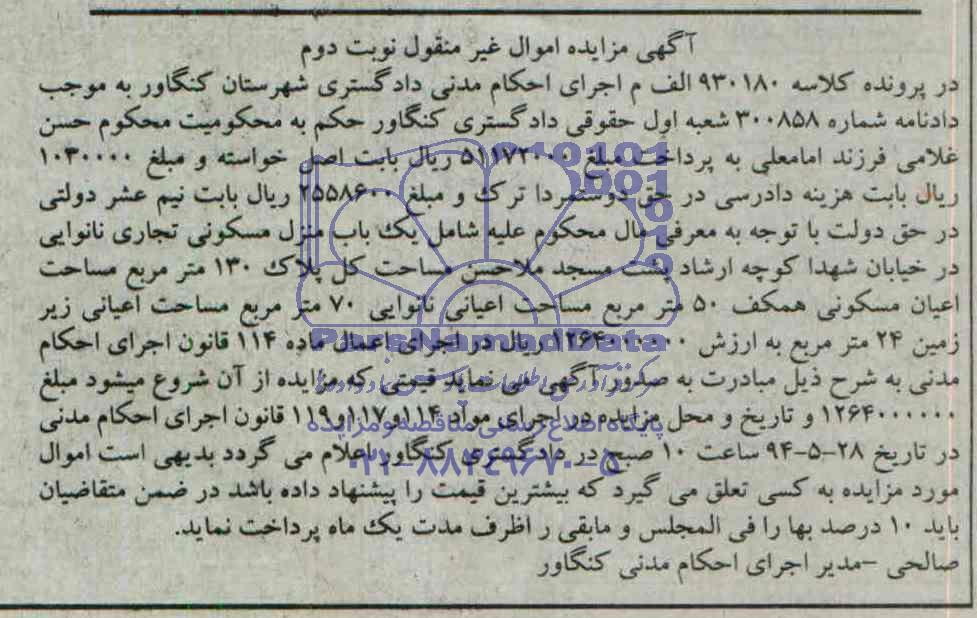 آگهی مزایده اموال غیر منقول نوبت دوم
در پرونده کلاسه ۹۳۰۱۸۰ الف م اجرای احکام مدنی دادگستری شهرستان کنگاور به موجب
دادنامه شماره ۳۰۰۸۵۸ شعبه اول حقوقی دادگستری کنگاور حکم به محکومیت محکوم حسن
غلامی فرزند امامعلی به پرداخت مبلغ ۵۱۱۷۲۰۰۰ ریال بابت اصل خواسته و مبلغ ۱۰۳۰۰۰۰
ریال بابت هزینه دادرسی در حق دوستمردا ترک و مبلغ ۲۵۵۸۶۰۰ ریال بابت نیم عشر دولتی
در حق دولت با توجه به معرفی مال محکوم علیه شامل یک باب منزل مسکونی تجاری نانوایی
در خیابان شهدا کوچه ارشاد پشت مسجد ملاحسن مساحت کل پلاک ۱۳۰ متر مربع مساحت
اعیان مسکونی همکف ۵۰ متر مربع مساحت اعیانی نانوایی ۷۰ متر مربع مساحت اعیانی زیر
زمین ۲۴ متر مربع به ارزش ۱۲۶۴۰۰۰۰۰۰ ریال در اجرای اعمال ماده ۱۱۴ قانون اجرای احکام
مدنی به شرح ذیل مبادرت به صدور آگهی می نماید قیمتی که مزایده از آن شروع میشود مبلغ
۱۲۶۴۰۰۰۰۰۰ و تاریخ و محل مزایده در اجرای مواد ۱۱۴و۱۱۷و۱۱۹ قانون اجرای احکام مدنی
در تاریخ ۲۸-۵-۹۴ ساعت ۱۰ صبح در دادگستری کنگاور اعلام می گردد بدیهی است اموال
مورد مزایده به کسی تعلق می گیرد که بیشترین قیمت را پیشنهاد داده باشد در ضمن متقاضیان
باید ۱۰ درصد بها را فی المجلس و مابقی ر اظرف مدت یک ماه پرداخت نماید.
صالحی -مدیر اجرای احکام مدنی کنگاور
ParsNamadData
پایگاه اطلاع رسانی مناقصه و مزایده
۰۲۱-۸۸۳۴۹۶۷۰-۵